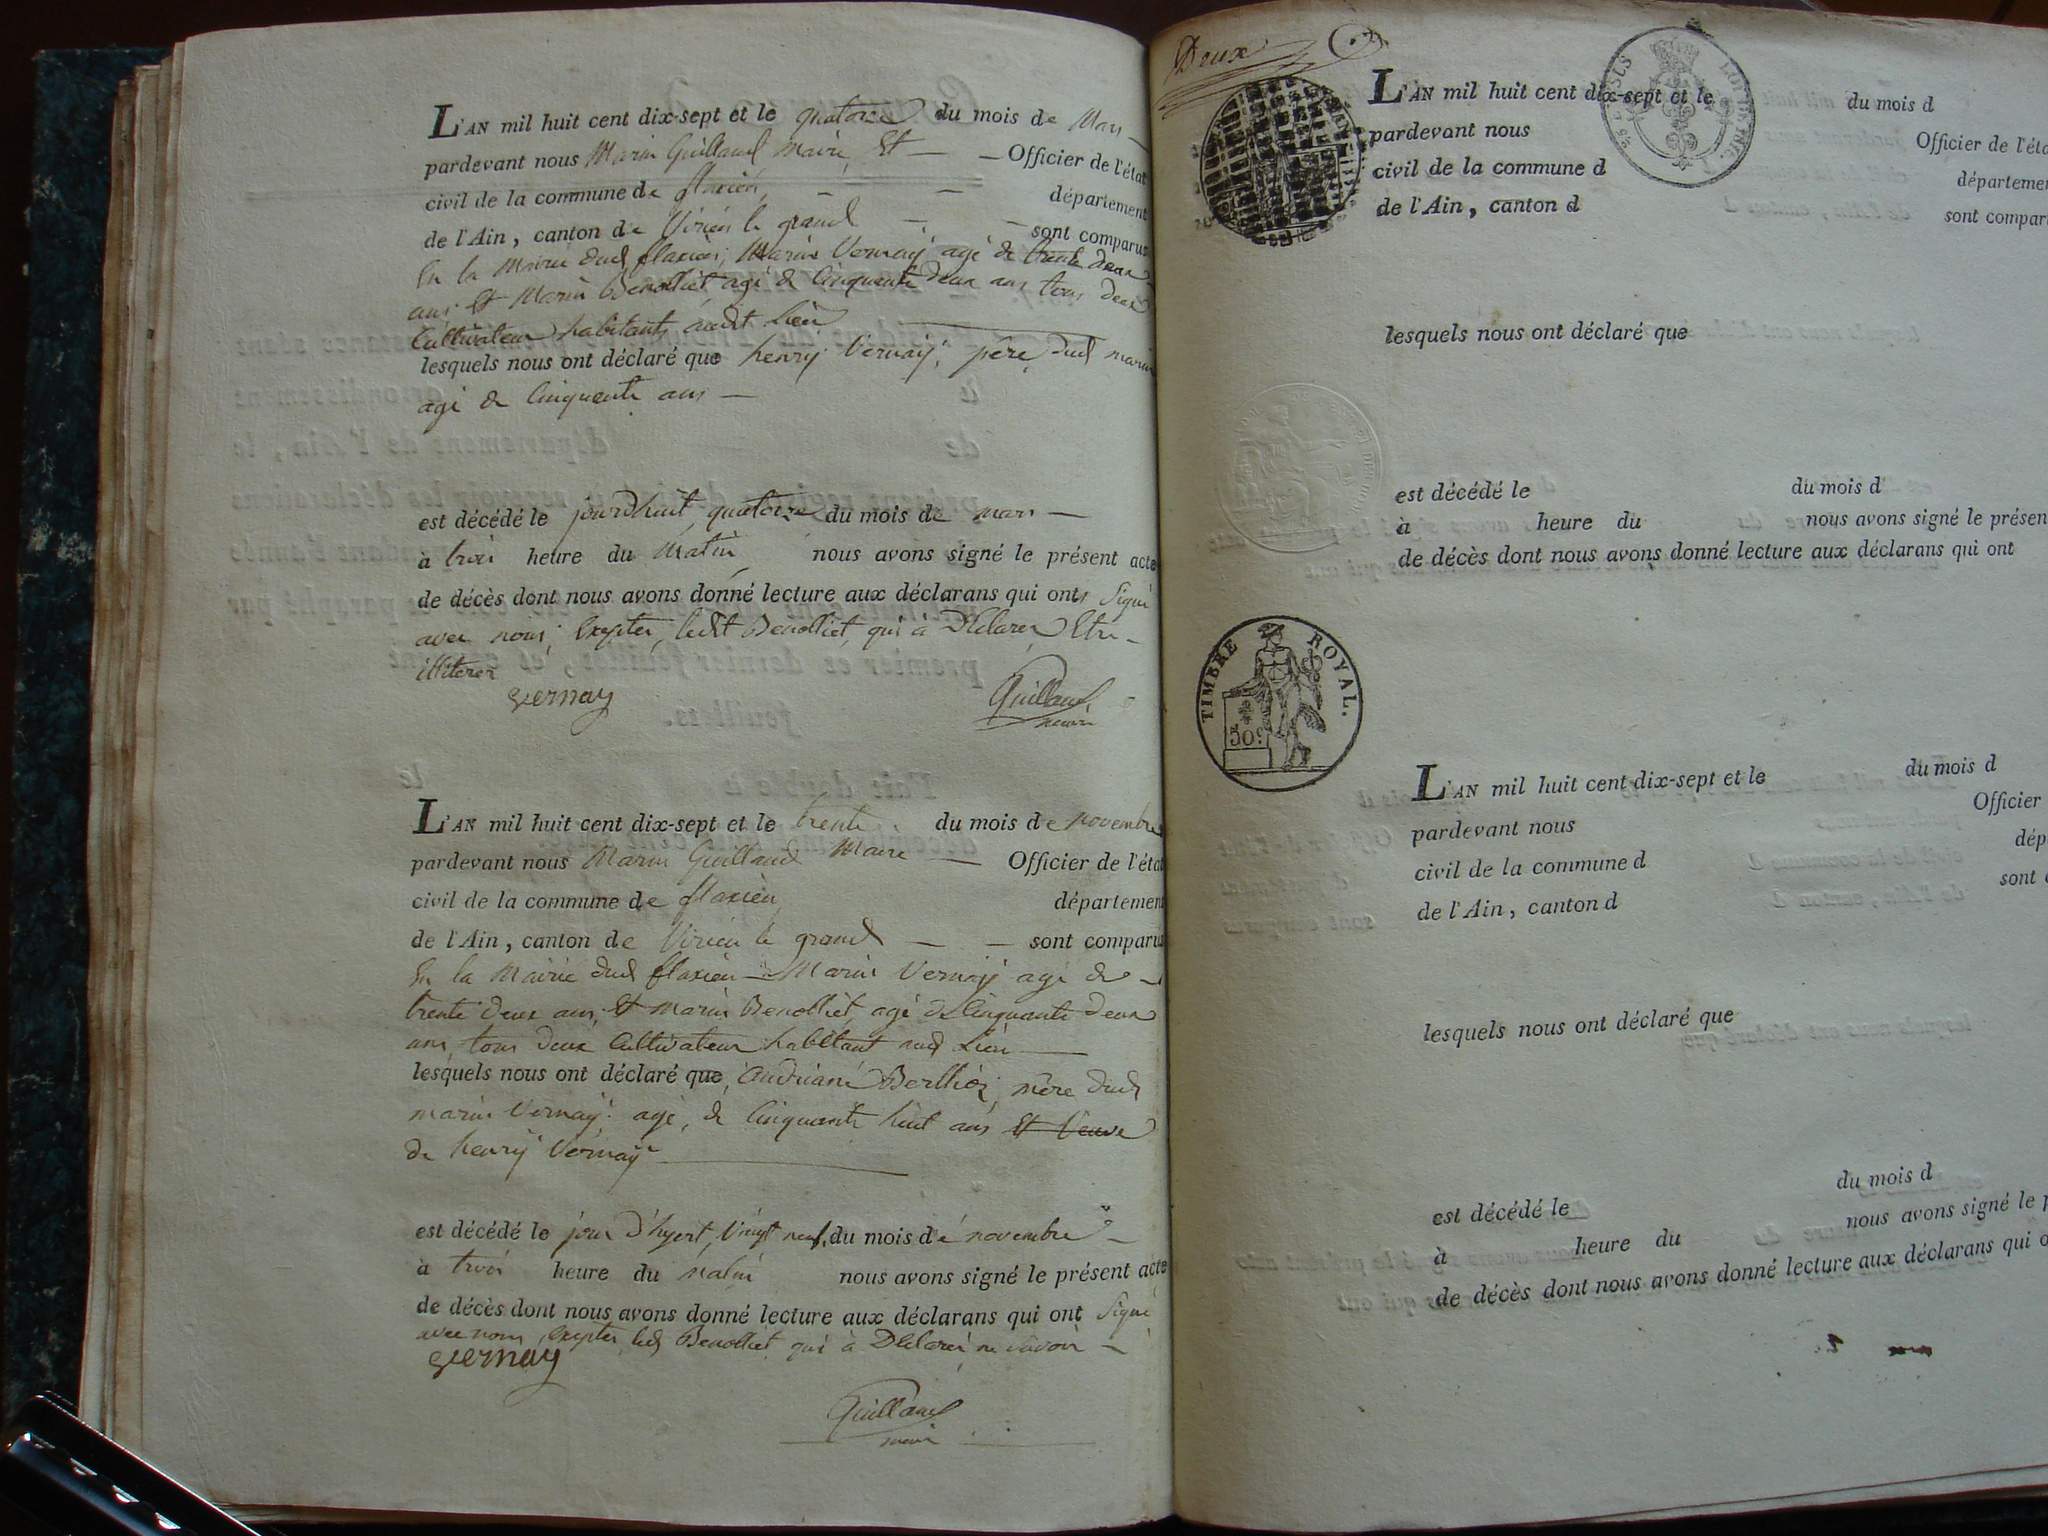 L'AN mil huit cent dix-sept et le quatorze du mois de Mars
pardevant nous Marin Guilland Maire Et Officier de l'état
civil de la commune de flaxieu département
de l'Ain, canton de Virieu le grand sont comparus
En la Mairie dud flaxieu, Marin Vernay agé de trente deux
ans Et Marin Benolliet agé de Cinquante deux ans tous deux
Cultivateur habitants audit Lieu
lesquels nous ont déclaré que henry Vernay, père dud marin
agé de Cinquente ans
est décédé le jourdhuit quatorze du mois de mars
à trois heure du Matin nous avons signé le présent acte
de décès dont nous avons donné lecture aux déclarans qui ont Signé
avec nous, Excepter, ledit Benolliet, qui à Déclarer Etre
illiterer
Vernay Guilland
maire
L'AN mil huit cent dix-sept et le trente du mois de novembre
pardevant nous Marin Guilland Maire Officier de l'état
civil de la commune de flaxieu département
de l'Ain, canton de Virieu le grand sont comparus
En la Mairie dud flaxieu Marin Vernay agé de
trente deux ans, Et Marin Benolliet agé de Cinquante deux
ans, tous deux Cultivateur habitant aud Lieu
lesquels nous ont déclaré que, Andriane Berthier, mère dud
marin Vernay, agé, de Cinquante huit ans Et Veuve
de henry Vernay
est décédé le jour D'hyert, Vingt neuf, du mois de novembre
à trois heure du matin nous avons signé le présent acte
de décès dont nous avons donné lecture aux déclarans qui ont Signé
avec nous, Excepter, led Benolliet qui à Déclarer ne Savoir
Vernay
Guilland
maire
Deux
L'AN mil huit cent dix-sept et le du mois d
pardevant nous Officier de l'éta
civil de la commune d départemen
de l'Ain, canton d sont compar
lesquels nous ont déclaré que
est décédé le du mois d
à heure du nous avons signé le présen
de décès dont nous avons donné lecture aux déclarans qui ont
TIMBRE ROYAL.
50c
L'AN mil huit cent dix-sept et le du mois d
pardevant nous Officier
civil de la commune d dép
de l'Ain, canton d sont
lesquels nous ont déclaré que
est décédé le du mois d
à heure du nous avons signé le p
de décès dont nous avons donné lecture aux déclarans qui o